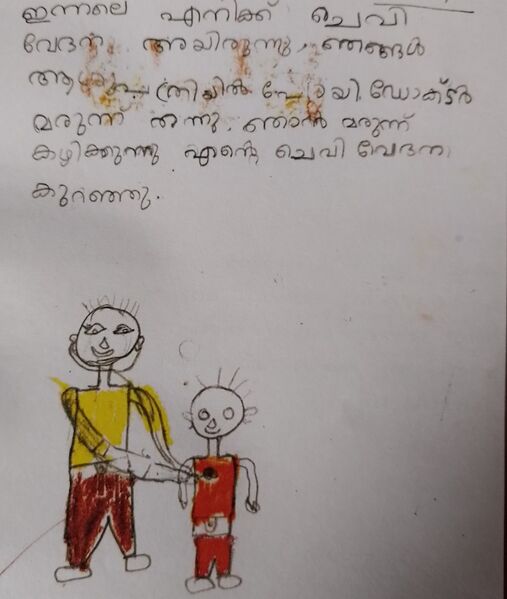 ഇന്നലെ എനിക്ക് ചെവി
വേദന അയിരുന്നു. ഞങ്ങൾ
ആശുപത്രിയിൽ പോയി. ഡോക്ടർ
മരുന്ന് തന്നു. ഞാൻ മരുന്ന്
കഴിക്കുന്നു എന്റെ ചെവി വേദന
കുറഞ്ഞു.